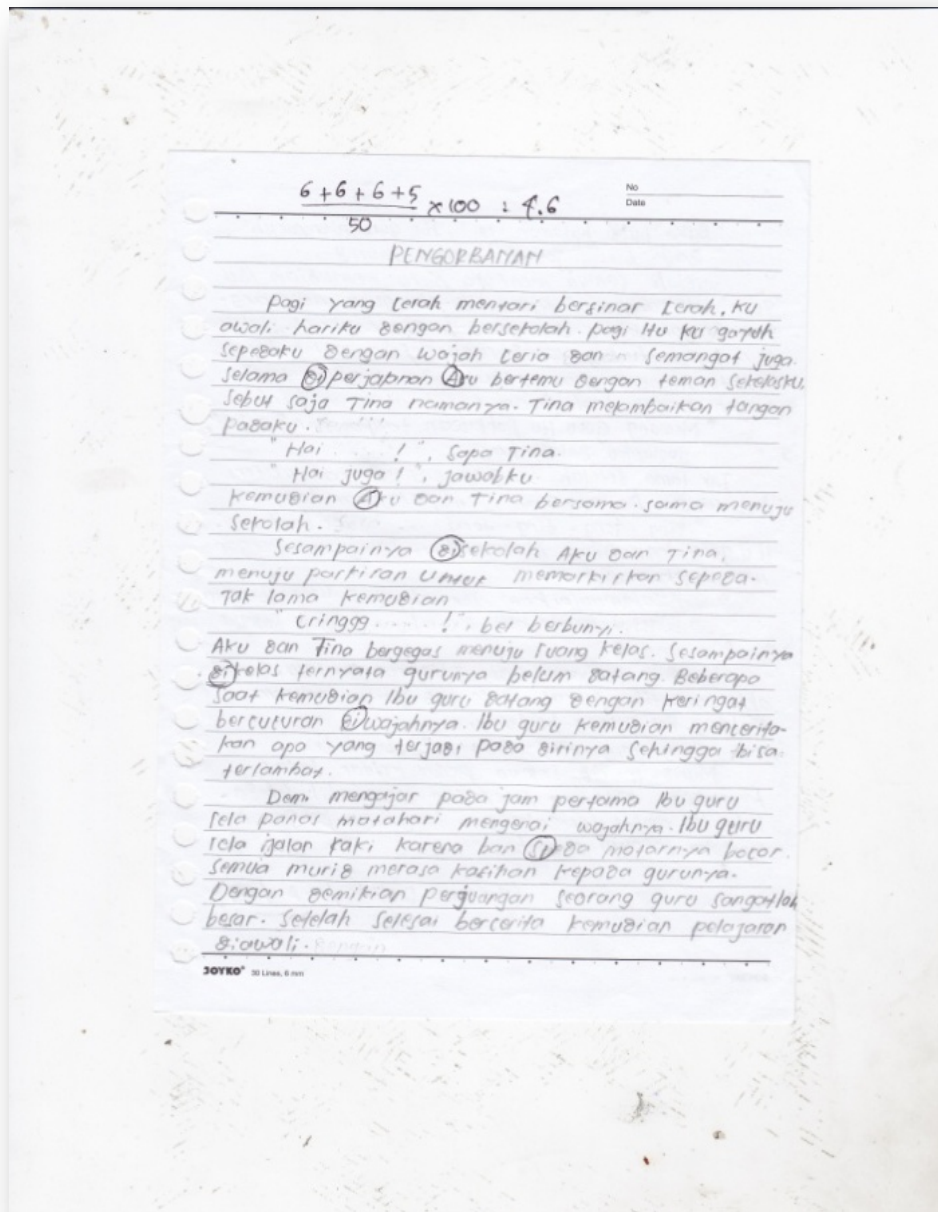 6 + 6 + 6 + 5
50
x 100 : 4.6
No
Date
PENGORBANAN
Pagi yang cerah mentari bersinar cerah, ku
awali hariku dengan bersekolah. pagi itu ku gayoh
sepedaku dengan wajah ceria dan semangat juga.
Selama di perjapnan Aku bertemu dengan teman sekelasku,
Sebut saja Tina namanya. Tina melambaikan tangan
padaku.
"Hai ..... !", Sapa Tina.
"Hai juga !", jawabku
Kemudian Aku dan Tina bersama-sama menuju
sekolah.
Sesampainya disekolah Aku dan Tina,
menuju parkiran untuk memarkirkan sepeda.
Tak lama kemudian
"Cringgg ..... !", bel berbunyi.
Aku dan Tina bergegas menuju ruang kelas. Sesampainya
dikelas ternyata gurunya belum datang. Beberapa
saat kemudian Ibu guru datang dengan keringat
bercucuran diwajahnya. Ibu guru kemudian mencerita-
kan apa yang terjadi pada dirinya sehingga bisa
terlambat.
Demi mengajar pada jam pertama Ibu guru
rela panas matahari mengenai wajahnya. Ibu guru
rela jalan kaki karena ban speda motornya bocor.
Semua murid merasa kasihan kepada gurunya.
Dengan demikian perjuangan seorang guru sangatlah
besar. Setelah selesai bercerita kemudian pelajaran
diawali.
JOYKO 30 Lines, 6 mm